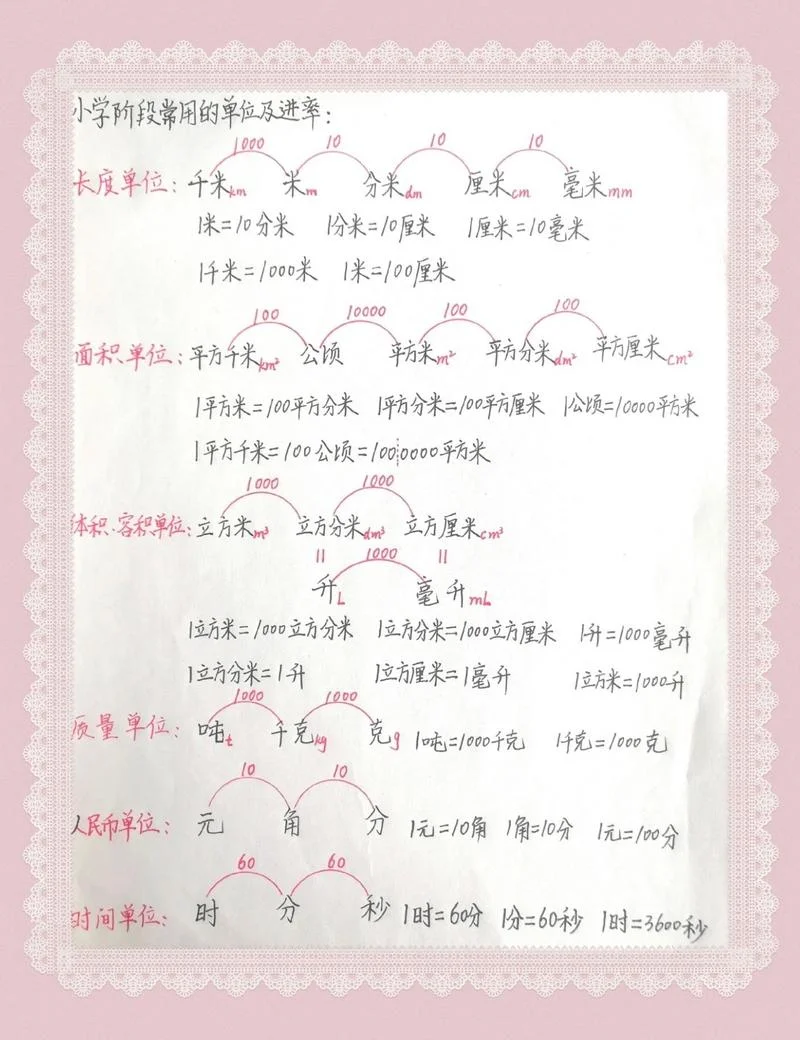 小学阶段常用的单位及进率:
1000 10 10 10
长度单位: 千米km 米m 分米dm 厘米cm 毫米mm
1米=10分米 1分米=10厘米 1厘米=10毫米
1千米=1000米 1米=100厘米
100 10000 100 100
面积单位: 平方千米km² 公顷 平方米m² 平方分米dm² 平方厘米cm²
1平方米=100平方分米 1平方分米=100平方厘米 1公顷=10000平方米
1平方千米=100公顷=1000000平方米
1000 1000
体积、容积单位: 立方米m³ 立方分米dm³ 立方厘米cm³
= 1000 =
升L 毫升mL
1立方米=1000立方分米 1立方分米=1000立方厘米 1升=1000毫升
1立方分米=1升 1立方厘米=1毫升 1立方米=1000升
1000 1000
质量单位: 吨t 千克kg 克g 1吨=1000千克 1千克=1000克
10 10
人民币单位: 元 角 分 1元=10角 1角=10分 1元=100分
60 60
时间单位: 时 分 秒 1时=60分 1分=60秒 1时=3600秒